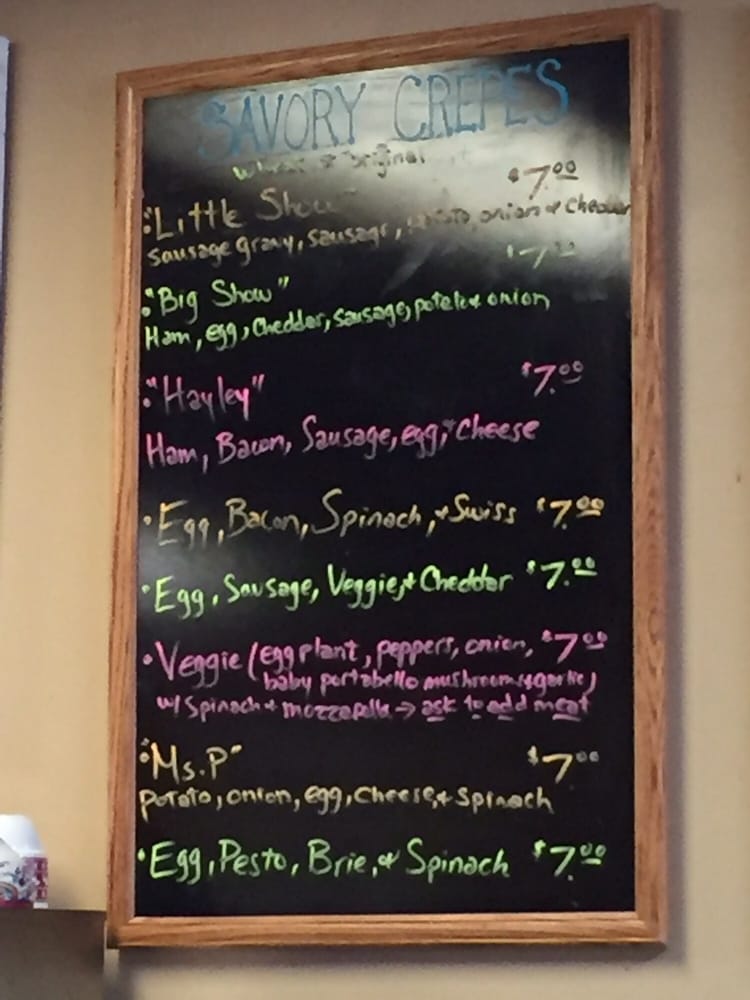 SAVORY CREPES
wheat or original
"Little Show" $7.00
sausage gravy, sausage, potato, onion & cheddar
"Big Show" $7.00
Ham, egg, Cheddar, sausage, potato & onion
"Hayley" $7.00
Ham, Bacon, Sausage, egg, & cheese
• Egg, Bacon, Spinach, & Swiss $7.00
• Egg, Sausage, Veggie, & Cheddar $7.00
• Veggie (eggplant, peppers, onion, $7.00
baby portabello mushrooms & garlic)
w/ Spinach & mozzarella → ask to add meat
"Ms. P" $7.00
potato, onion, egg, cheese, & spinach
• Egg, Pesto, Brie, & Spinach $7.00